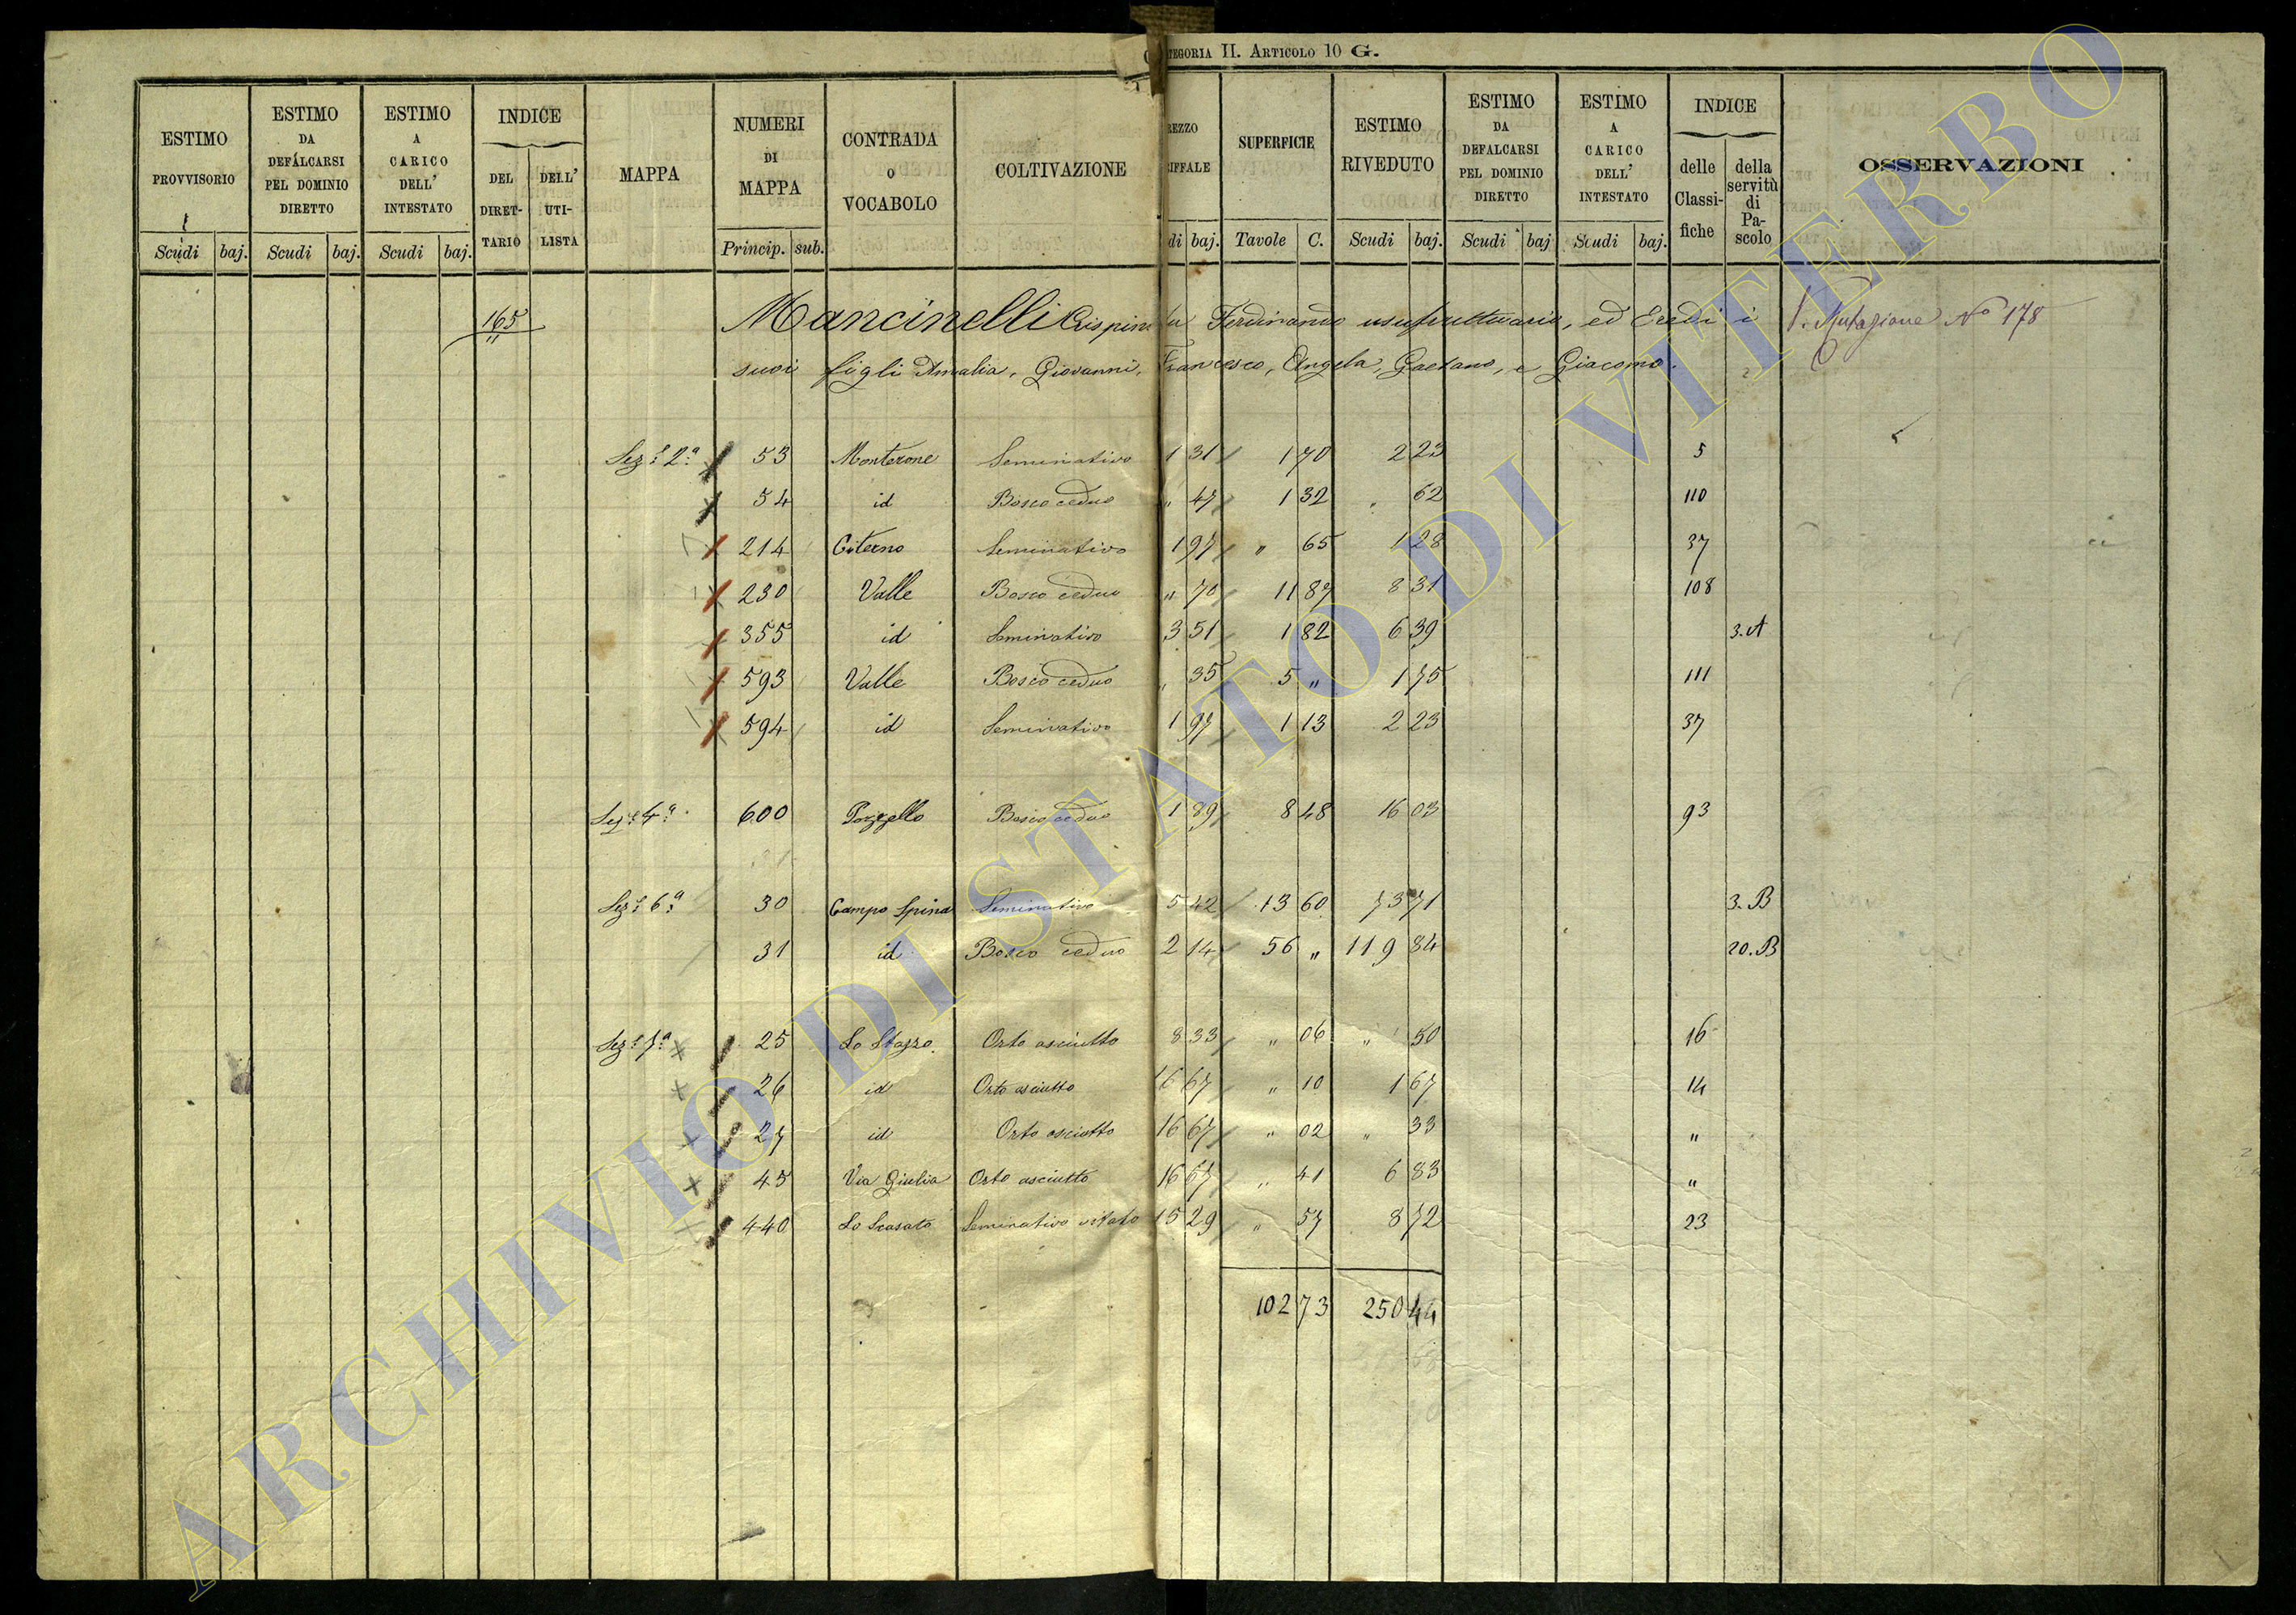 CATEGORIA II. ARTICOLO 10 G.
ESTIMO PROVVISORIO
ESTIMO DA DEFALCARSI PEL DOMINIO DIRETTO
ESTIMO A CARICO DELL' INTESTATO
INDICE
DEL DIRET-TARIO
DELL' UTI-LISTA
MAPPA
NUMERI DI MAPPA
CONTRADA O VOCABOLO
COLTIVAZIONE
REZZO RIFFALE
SUPERFICIE
ESTIMO RIVEDUTO
ESTIMO DA DEFALCARSI PEL DOMINIO DIRETTO
ESTIMO A CARICO DELL' INTESTATO
INDICE
delle Classi-fiche
della servitù di Pa-scolo
OSSERVAZIONI
Scudi baj. Scudi baj. Scudi baj. Princip. sub. di baj. Tavole C. Scudi baj. Scudi baj Scudi baj.
165 Mancinelli Crispino fu Ferdinando usufruttuario, ed Eredi i V. Mutazione No 178
suoi figli Amalia, Giovanni, Francesco, Angela, Gaetano, e Giacomo.
Sez.e 2.a 53 Monterone Seminativo 1 31 1 70 2 23 5
54 id Bosco ceduo " 47 1 32 " 62 110
214 Citerno Seminativo 1 97 " 65 1 28 37
230 Valle Bosco ceduo " 70 11 87 8 31 108
355 id Seminativo 3 51 1 82 6 39 3.A
593 Valle Bosco ceduo " 35 5 " 1 75 111
594 id Seminativo 1 97 1 13 2 23 37
Sez.e 4.a 600 Pozzello Bosco ceduo 1 89 8 48 16 03 93
Sez.e 6.a 30 Campo Spina Seminativo 5 42 13 60 73 71 3.B
31 id Bosco ceduo 2 14 56 " 119 84 20.B
Sez.e 7.a 25 Lo Stazzo Orto asciutto 8 33 " 06 " 50 16
26 id Orto asciutto 16 67 " 10 1 67 14
27 id Orto asciutto 16 67 " 02 " 33 "
45 Via Giulia Orto asciutto 16 67 " 41 6 83 "
440 Lo Scasato Seminativo vitato 15 29 " 57 8 72 23
102 73 250 44
ARCHIVIO DI STATO DI VITERBO